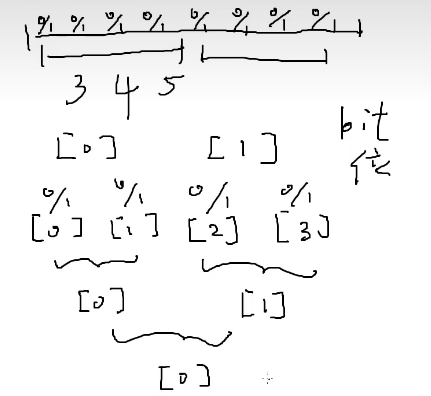 0/1 0/1 0/1 0/1 0/1 0/1 0/1 0/1
3 4 5
[0] [1]
bit
位
0/1 0/1 0/1 0/1
[0] [1] [2] [3]
[0] [1]
[0]